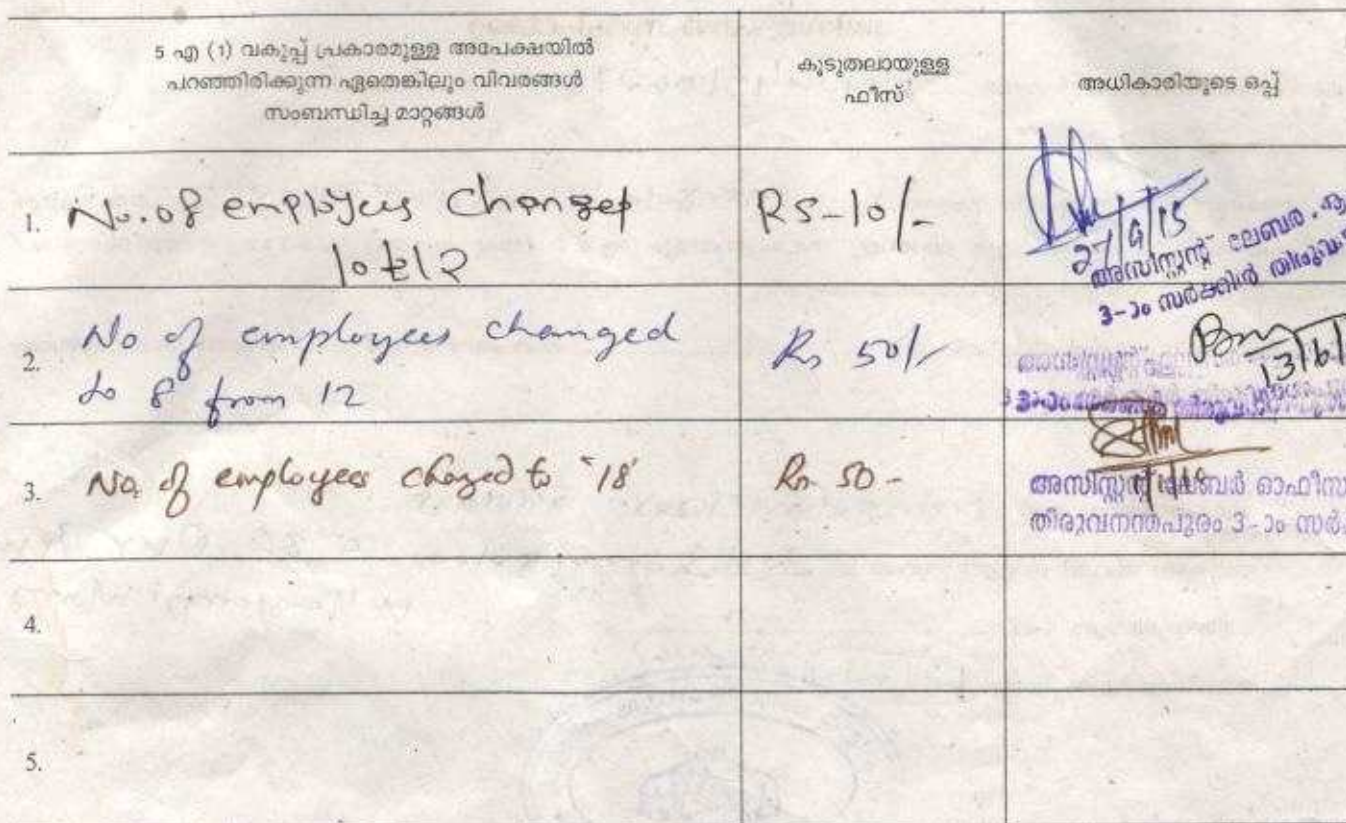 5 എ (1) വകുപ്പ് പ്രകാരമുള്ള അപേക്ഷയിൽ
പറഞ്ഞിരിക്കുന്ന ഏതെങ്കിലും വിവരങ്ങൾ
സംബന്ധിച്ച മാറ്റങ്ങൾ
കൂടുതലായുള്ള
ഫീസ്
അധികാരിയുടെ ഒപ്പ്
1. No. of employees Changed
10 to 12
Rs-10/-
27/9/15
അസിസ്റ്റന്റ് ലേബർ
3-ാം സർക്കിൾ
2. No of employees changed
to 8 from 12
Rs 50/-
13/6/
3. No. of employees changed to "18"
Rs. 50-
അസിസ്റ്റന്റ് ലേബർ ഓഫീസ
തിരുവനന്തപുരം 3-ാം സർ
4.
5.